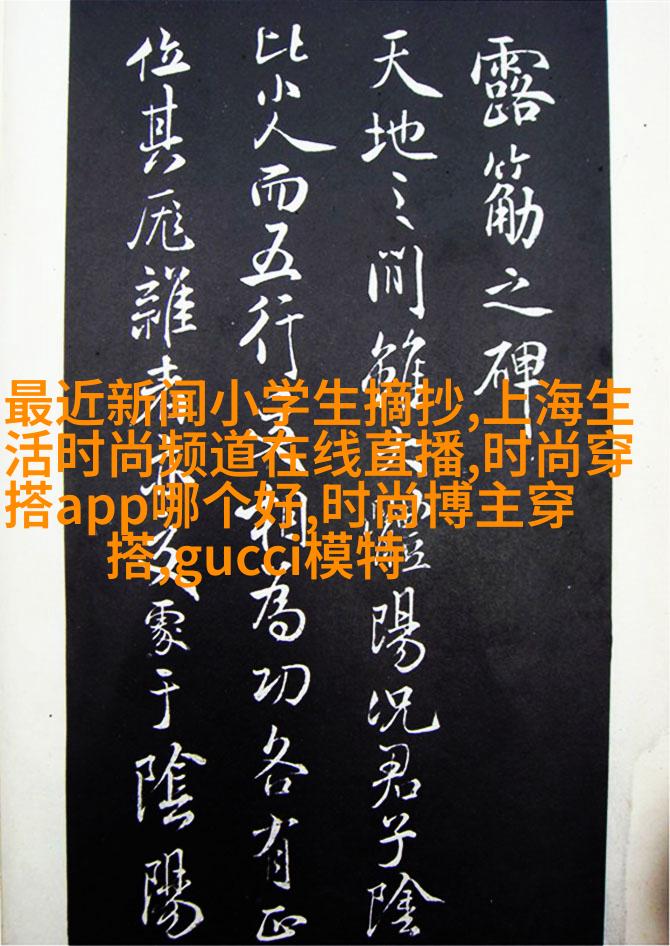 露筋之碑
天地之間雖陽況君子陰
比小人而五行相為功各有正
位其厖雜處于陰陽
最近新闻小学生摘抄,上海生
活时尚频道在线直播,时尚穿
搭app哪个好,时尚博主穿
搭,gucci模特